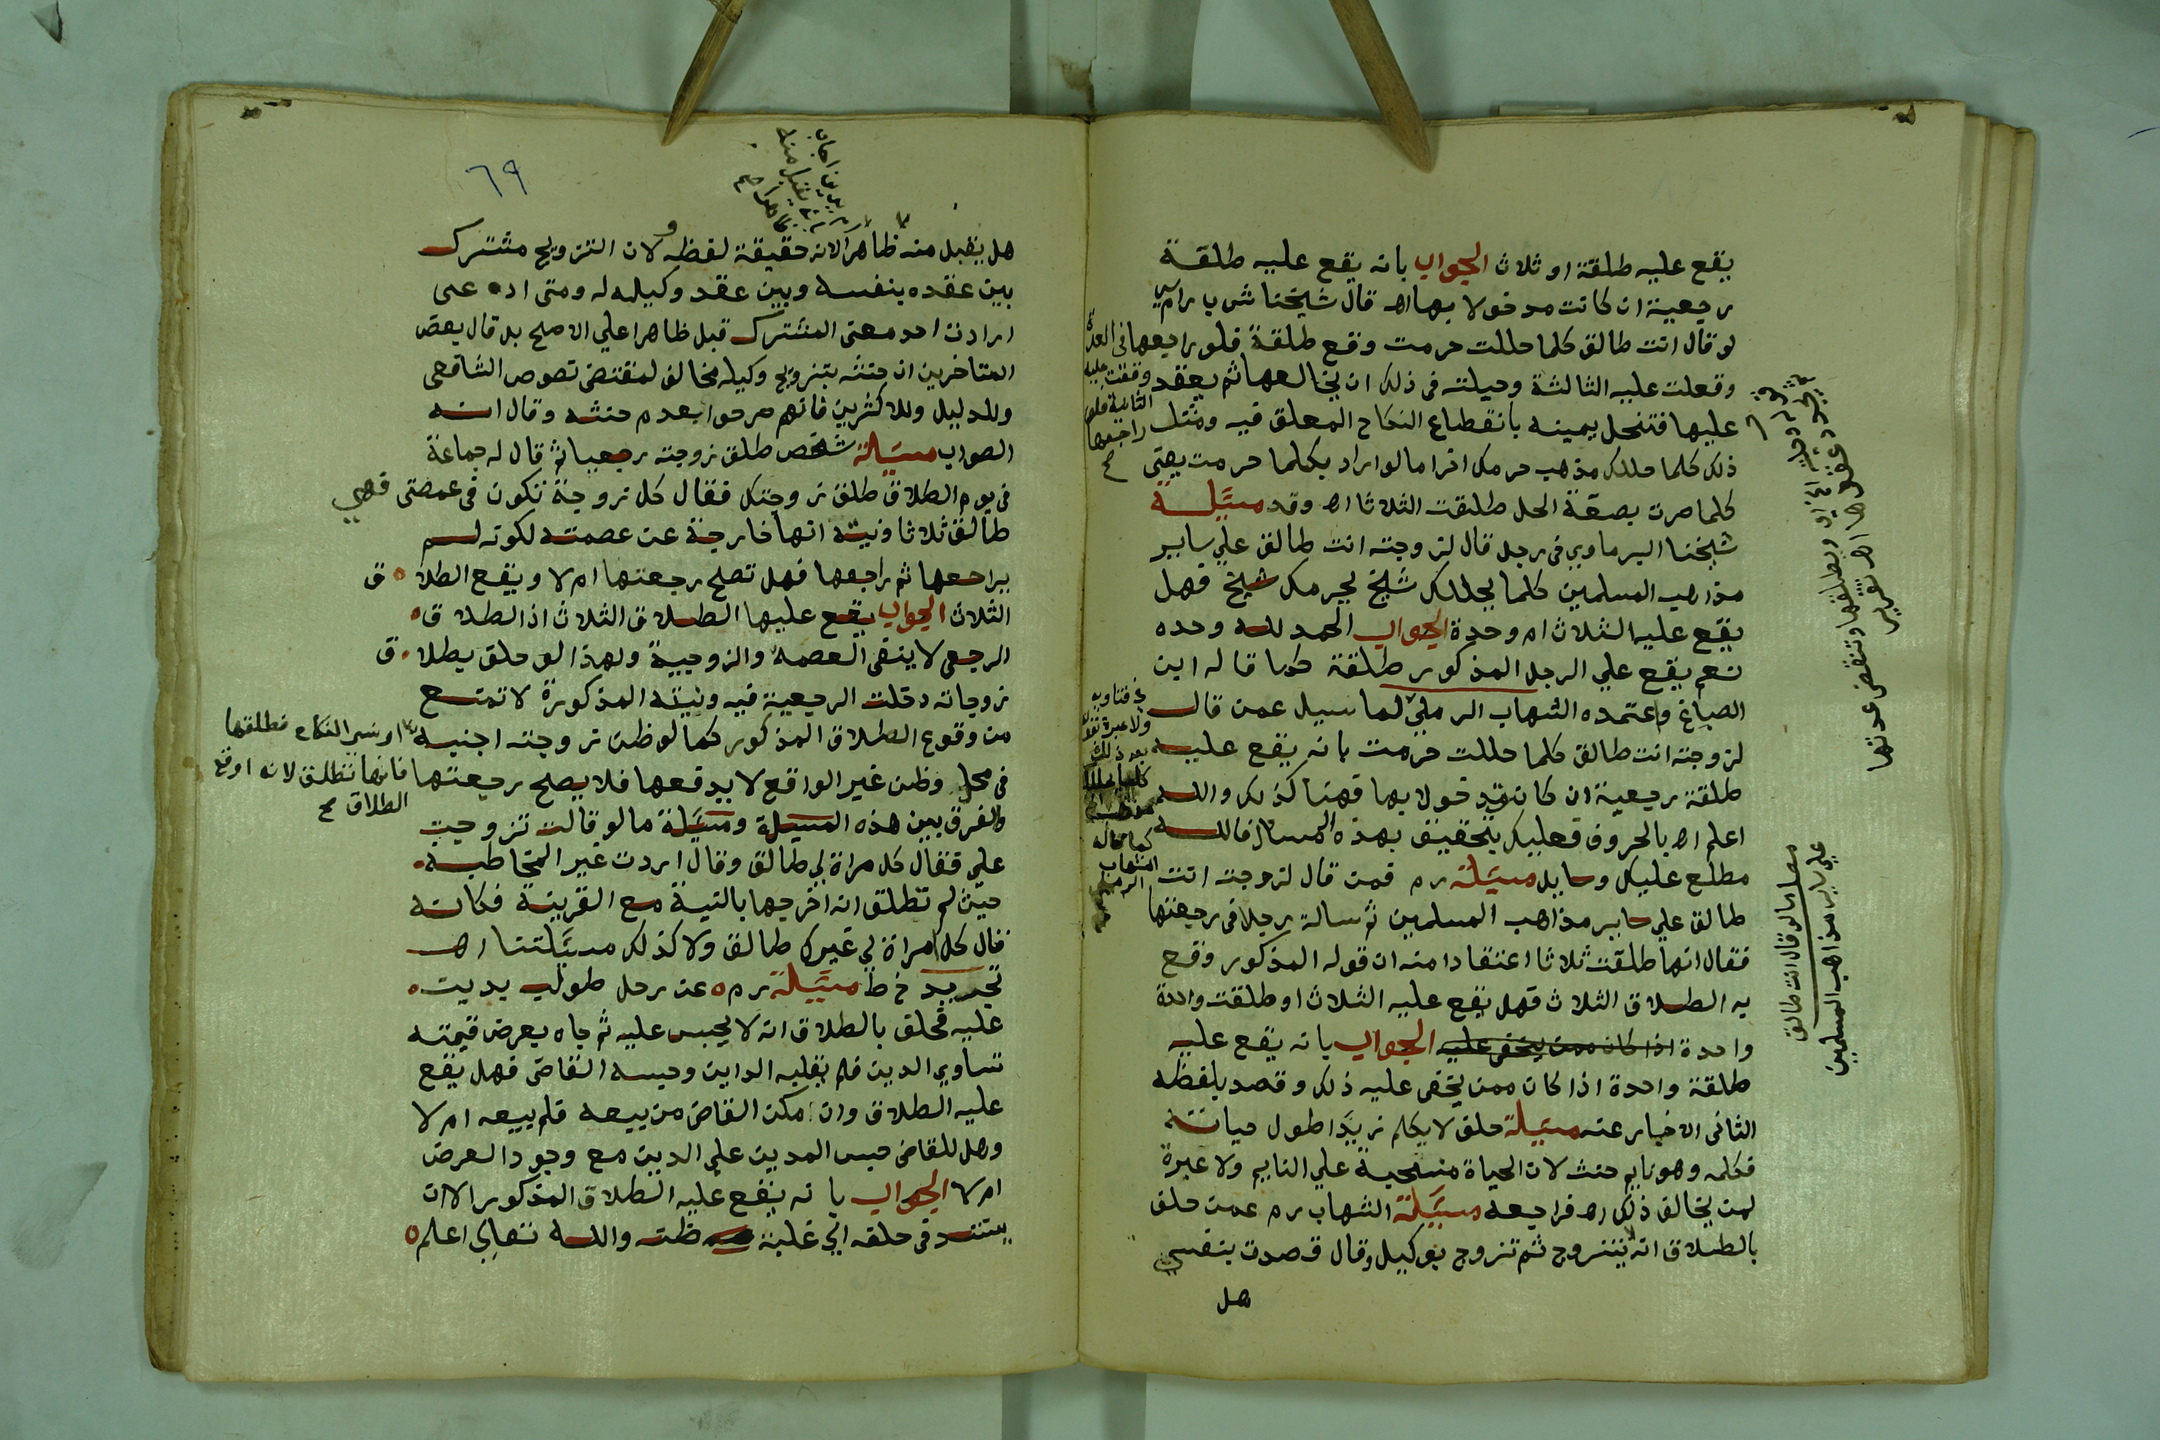 يقع عليه طلقة او ثلاث الجواب بانه يقع عليه طلقة
رجعية ان كانت مدخولا بها اهـ قال شيخنا ش
لو قال انت طالق كلما حللت حرمت وقع طلقة فلو راجعها في العدة
وقعت عليه الثانية فلو راجعها صح
وقعلت عليه الثالثة وحيلته في ذلك ان يخالعها ثم يعقد
عليها فتنحل يمينه بانقطاع النكاح المعلق فيه ومثل
ذلك كلما حللك مذهب حرمك اخر اما لو اراد بكلما حرمت يعني
كلما صرت بصفة الحل طلقت الثلاثا اهـ وقد مسئلة
شيخنا البرماوي في رجل قال لزوجته انت طالق علي ساير
مذاهب المسلمين كلما يحللك شيخ يحرمك شيخ فهل
يقع عليه الثلاث ام وحدة الجواب الحمد لله وحده
نعم يقع علي الرجل المذكور طلقة كما قاله ابن
الصباغ واعتمده الشهاب الرملي لما سيل عمن قال
في فتاويه
ولا عبرة
بعد ذلك
لزوجته انت طالق كلما حللت حرمت بانه يقع عليه
طلقة رجعية ان كانت مدخولا بها فهنا كذلك والله
اعلم اهـ بالحروف فعليك بتحقيق بهذه المسائل فالله
كما قاله
الشهاب
الرملي
مطلع عليك وسايل مسئلة رم فمن قال لزوجته انت
طالق علي ساير مذاهب المسلمين ثم ساله رجلا في رجعتها
فقال انها طلقت ثلاثا اعتقادا منه ان قوله المذكور وقع
به الطلاق الثلاث فهل يقع عليه الثلاث او طلقت واحدة
واحدة اذا كان ممن يخفى عليه الجواب بانه يقع عليه
طلقة واحدة اذا كان ممن يخفى عليه ذلك وقصد بلفظه
الثاني الاخبار عنه مسئلة حلف لا يكلم زيدا طول حياته
فكلمه وهو نايم حنث لان الحياة منسحبة علي النايم ولا عبرة
لمن يخالف ذلك اهـ فراجعه مسئلة الشهاب رم عمن حلف
بالطلاق انه يتزوج ثم تزوج بوكيل وقال قصدت بنفسي
هل
ويطلقها وتنقضي عدتها
يجود عقدها اهـ تقرير
مطلب لو قال انت طالق
علي ساير مذاهب المسلمين
٦٩
هل يقبل منه ظاهرا لانه حقيقة لفظه ولان التزويج مشترك
بين عقده بنفسه وبين عقد وكيله له ومتى ادعى
ارادة احد معنى المشترك قبل ظاهرا علي الاصح بل قال بعض
المتاخرين ان حنثه بتزويج وكيله مخالف لمقتضى نصوص الشافعي
وللدليل وللاكثرين فانهم صرحوا بعدم حنثه وقال انه
الصواب مسئلة شخص طلق زوجته رجعيا ثم قال له جماعة
في يوم الطلاق طلق زوجتك فقال كل زوجة تكون في عصمتي فهي
طالق ثلاثا ونيته انها خارجة عن عصمته لكونه لم
يراجعها ثم راجعها فهل تصلح رجعتها ام لا ويقع الطلاق
الثلاث الجواب يقع عليها الطلاق الثلاث اذ الطلاق
الرجعي لا ينفى العصمة والزوجية ولهذا لو حلف بطلاق
زوجاته دخلت الرجعية فيه ونيته المذكورة لا تمنع
من وقوع الطلاق المذكور كما لو ظن زوجته اجنبية
او نسي النكاح فطلقها
في محل وظن غير الواقع لا يدفعها فلا يصلح رجعتها
فانها تطلق لانه اوقع
الطلاق صح
والفرق بين هذه المسئلة ومسئلة ما لو قالت تزوجت
علي فقال كل مراة لي طالق وقال اردت غير المخاطبة
حيث لم تطلق انه اخرجها بالنية مع القرينة فكانه
قال كل امراة لي غيرك طالق ولا كذلك مسئلتنا اهـ
تجريد خ ط مسئلة رم عن رجل طولب بدين
عليه فحلف بالطلاق انه لا يحبس عليه ثم جاه بعرض قيمته
تساوي الدين فلم يقبله الداين وحبسه القاضي فهل يقع
عليه الطلاق وان امكن القاضي من بيعه فلم يبيعه ام لا
وهل للقاضي حبس المدين علي الدين مع وجود العرض
ام لا الجواب بانه يقع عليه الطلاق المذكور الا ان
يستند في حلفه الي غلبة ظنه والله تعالي اعلم